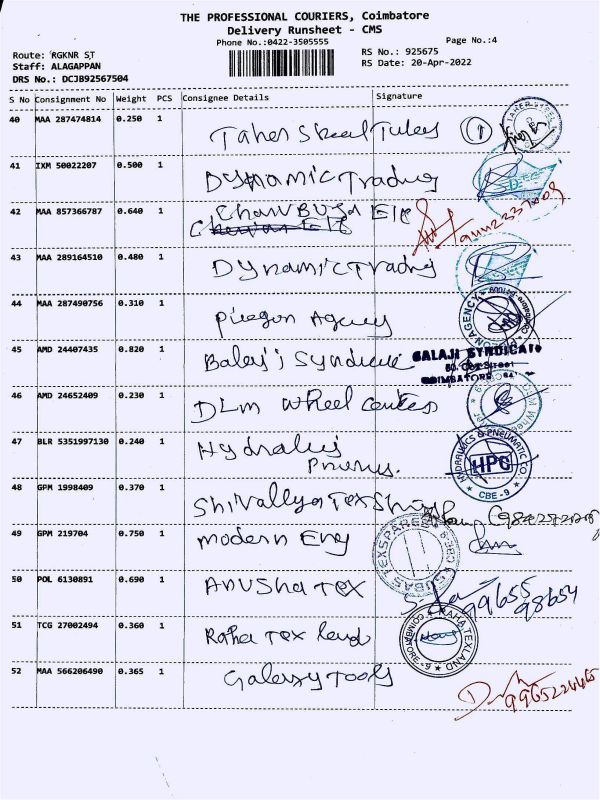 THE PROFESSIONAL COURIERS, Coimbatore
Delivery Runsheet - CMS
Phone No.:0422-3505555
Page No.:4
Route: RGKNR ST
RS No.: 925675
Staff: ALAGAPPAN
RS Date: 20-Apr-2022
DRS No.: DCJB92567504
S No Consignment No Weight PCS Consignee Details Signature
40 MAA 287474814 0.250 1 Taher Steel Tubes 1
41 IXM 50022207 0.500 1 Dynamic Trading
42 MAA 857366787 0.640 1
43 MAA 289164510 0.480 1 Dynamic Trading
44 MAA 287490756 0.310 1 Agency
45 AMD 24407435 0.820 1 Balaji Syndicate
BALAJI SYNDICATE
COIMBATORE
46 AMD 24652409 0.230 1 DLM Wheel Centre
47 BLR 5351997130 0.240 1
HYDRAULICS & PNEUMATIC CO
HPC
CBE - 9
48 GPM 1998409 0.370 1
49 GPM 219704 0.750 1 Modern Eng
50 POL 6130891 0.690 1 Anusha Tex
99655
98654
51 TCG 27002494 0.360 1 Raha Tex land
RAHA TEXLAND
52 MAA 566206490 0.365 1 Galaxy Tools